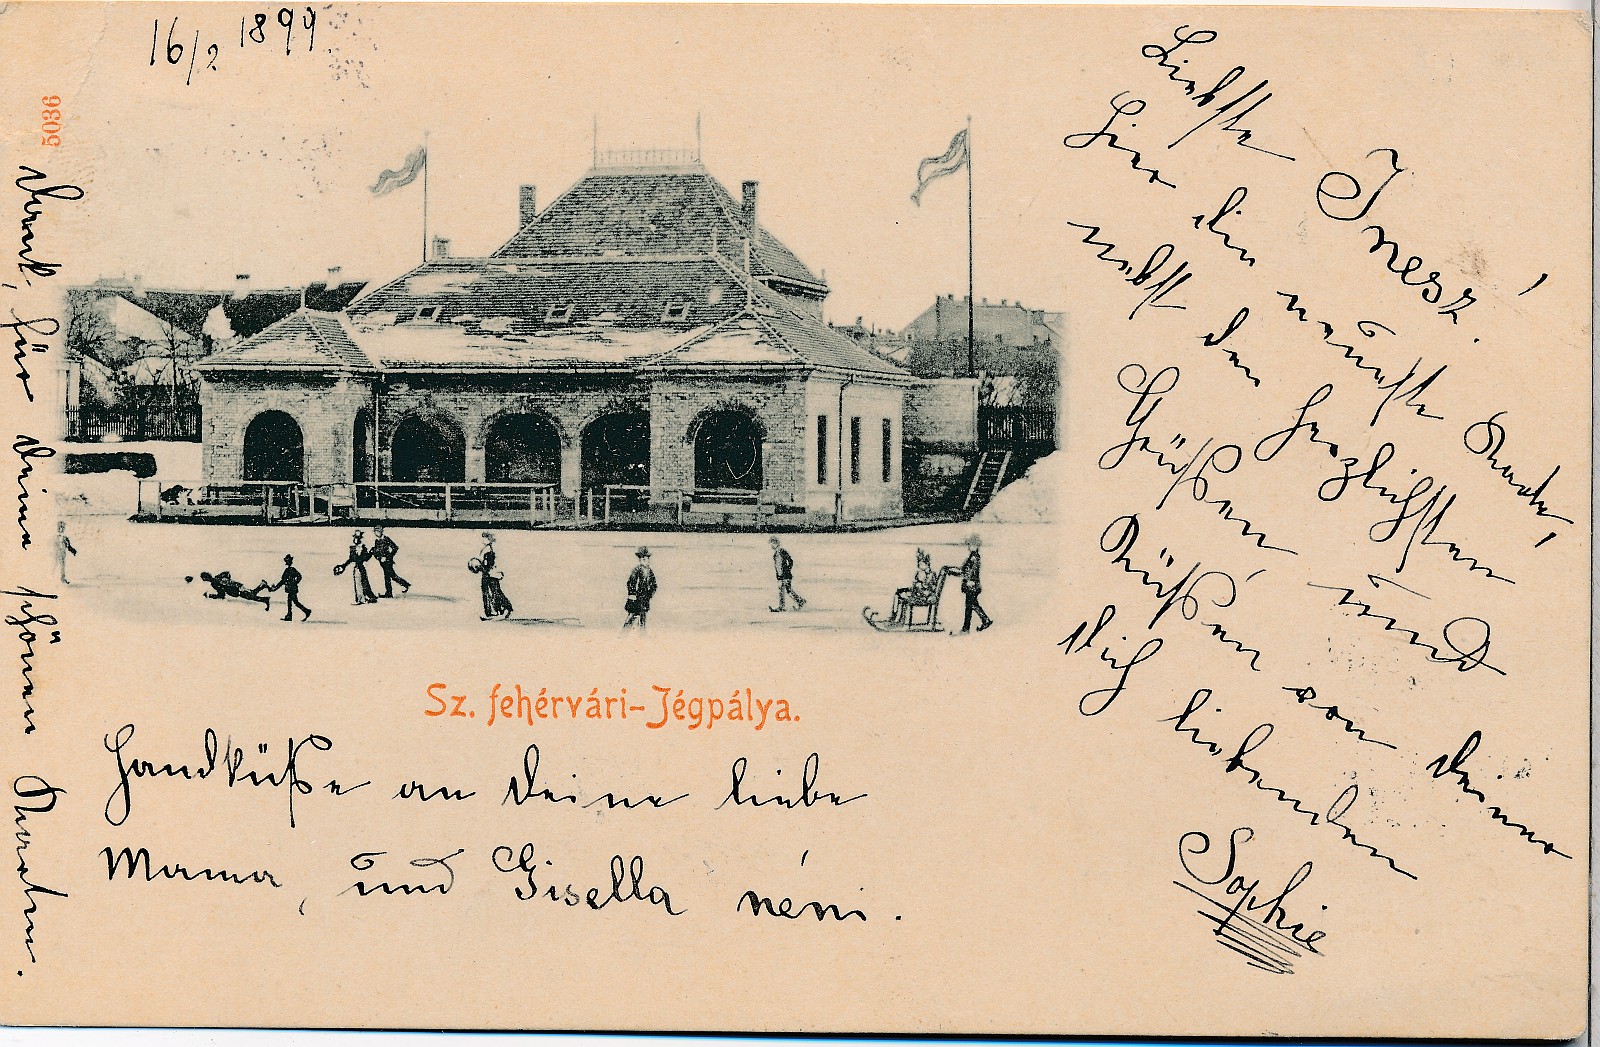 16/2 1899
5036
Liebste Inesz!
Hier die neueste Karte,
nebst den herzlichsten
Grüßen und
Küßen von Deiner
Dich liebenden
Sophie
Sz. fehérvári-Jégpálya.
Handküße an Deine liebe
Mama, und Gisella néni.
Dank für Deine schönen Karten.